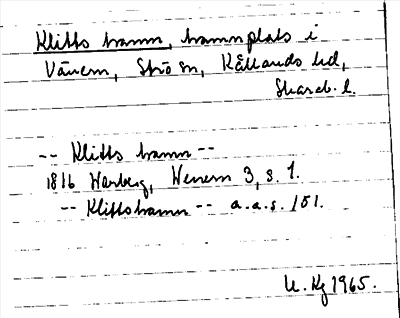 Klitts hamn, hamnplats i
Vänern, Strö sn, Kållands hd,
Skarab. l.
-- Klitts hamn --
1816 Warberg, Wenern 3, s. 1.
-- Klittshamn -- a.a.s. 101.
U. Kg 1965.